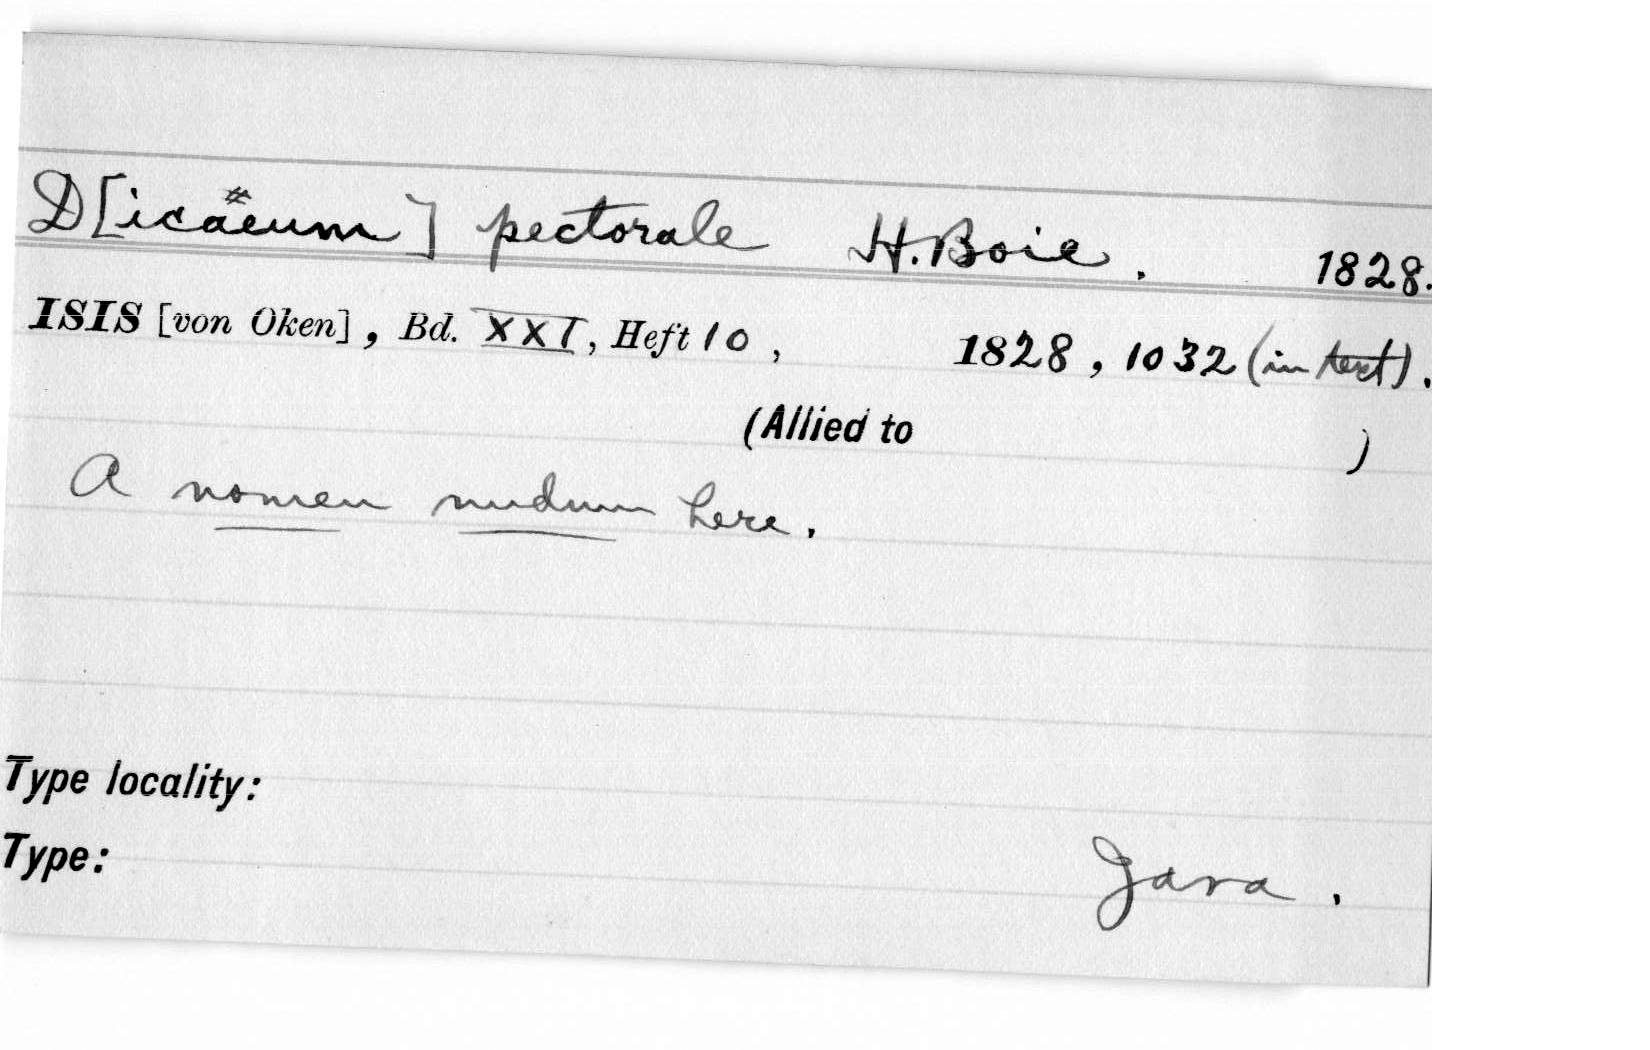 D[icaeum] pectorale H. Boie. 1828.
ISIS [von Oken], Bd. XXI, Heft 10, 1828, 1032 (in text).
(Allied to )
A nomen nudum here.
Type locality:
Type: Java.